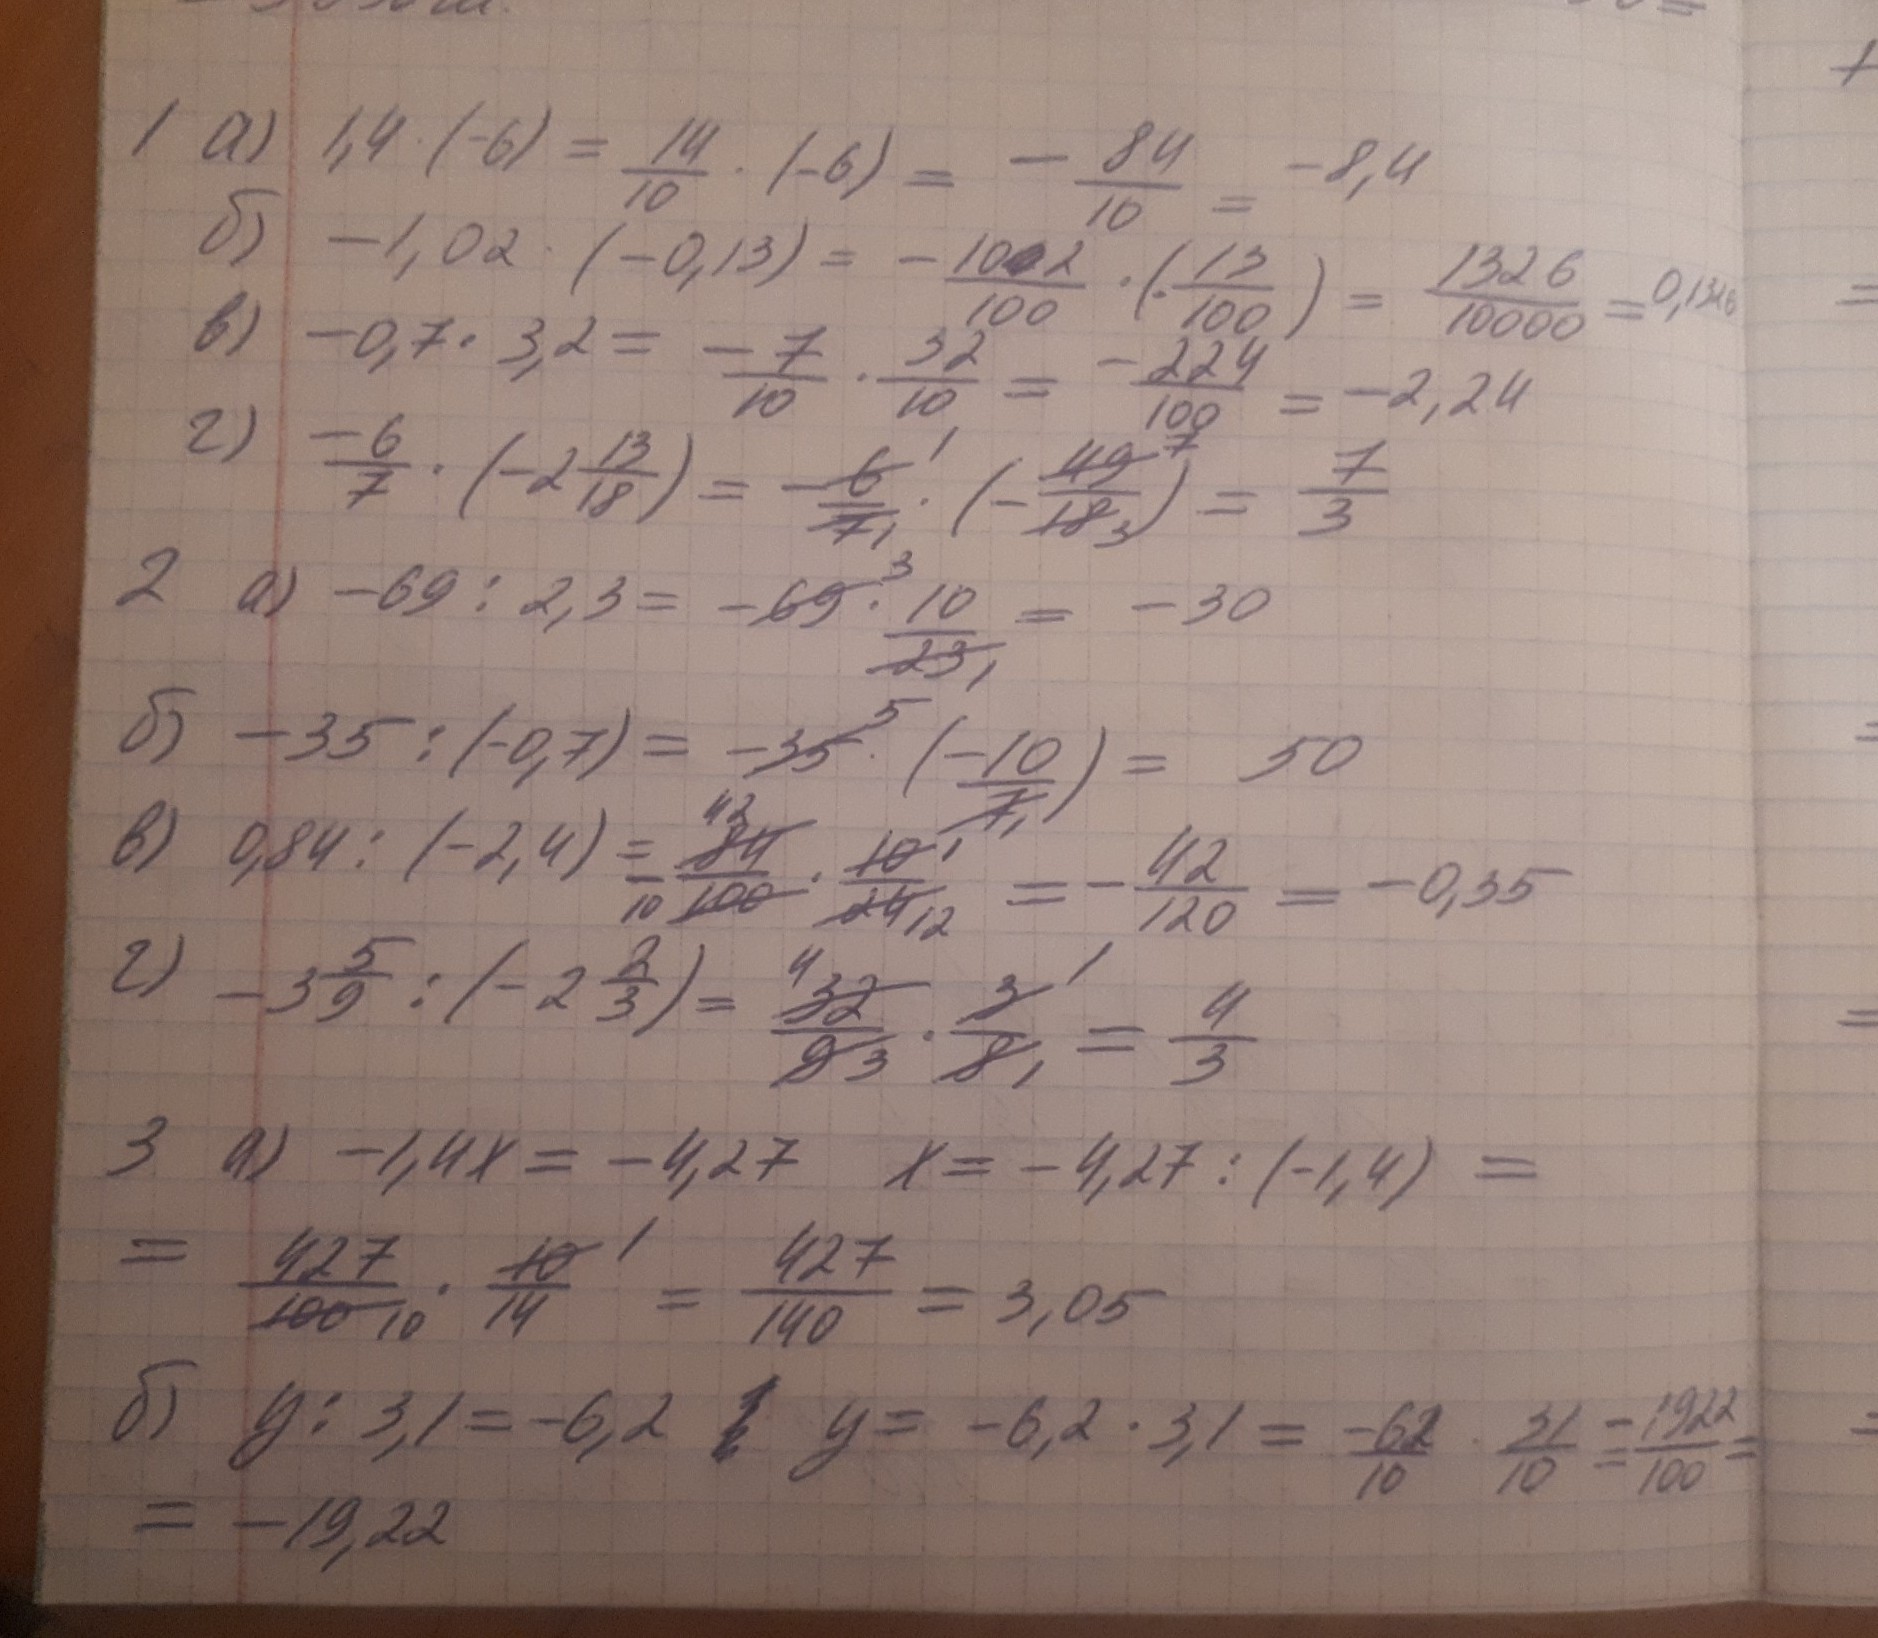 1 а) 1,4 · (-6) = 14/10 · (-6) = - 84/10 = -8,4
б) -1,02 · (-0,13) = - 102/100 · (- 13/100) = 1326/10000 = 0,1326
в) -0,7 · 3,2 = -7/10 · 32/10 = -224/100 = -2,24
г) -6/7 · (-2 13/18) = - 6/7 · (- 49/18) = 7/3
2 а) -69 : 2,3 = -69 · 10/23 = -30
б) -35 : (-0,7) = -35 · (-10/7) = 50
в) 0,84 : (-2,4) = - 84/100 · 10/24 = - 42/120 = -0,35
г) -3 5/9 : (-2 2/3) = 32/9 · 3/8 = 4/3
3 а) -1,4x = -4,27 x = -4,27 : (-1,4) =
= 427/100 · 10/14 = 427/140 = 3,05
б) y : 3,1 = -6,2 y = -6,2 · 3,1 = -62/10 · 31/10 = -1922/100 =
= -19,22